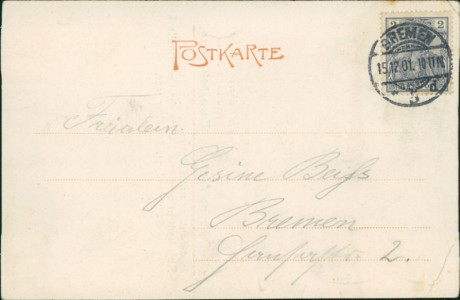 POSTKARTE
2 2
BREMEN
15.12.01. 10-11N.
5
Fräulein.
Gesine
Bremen
2.